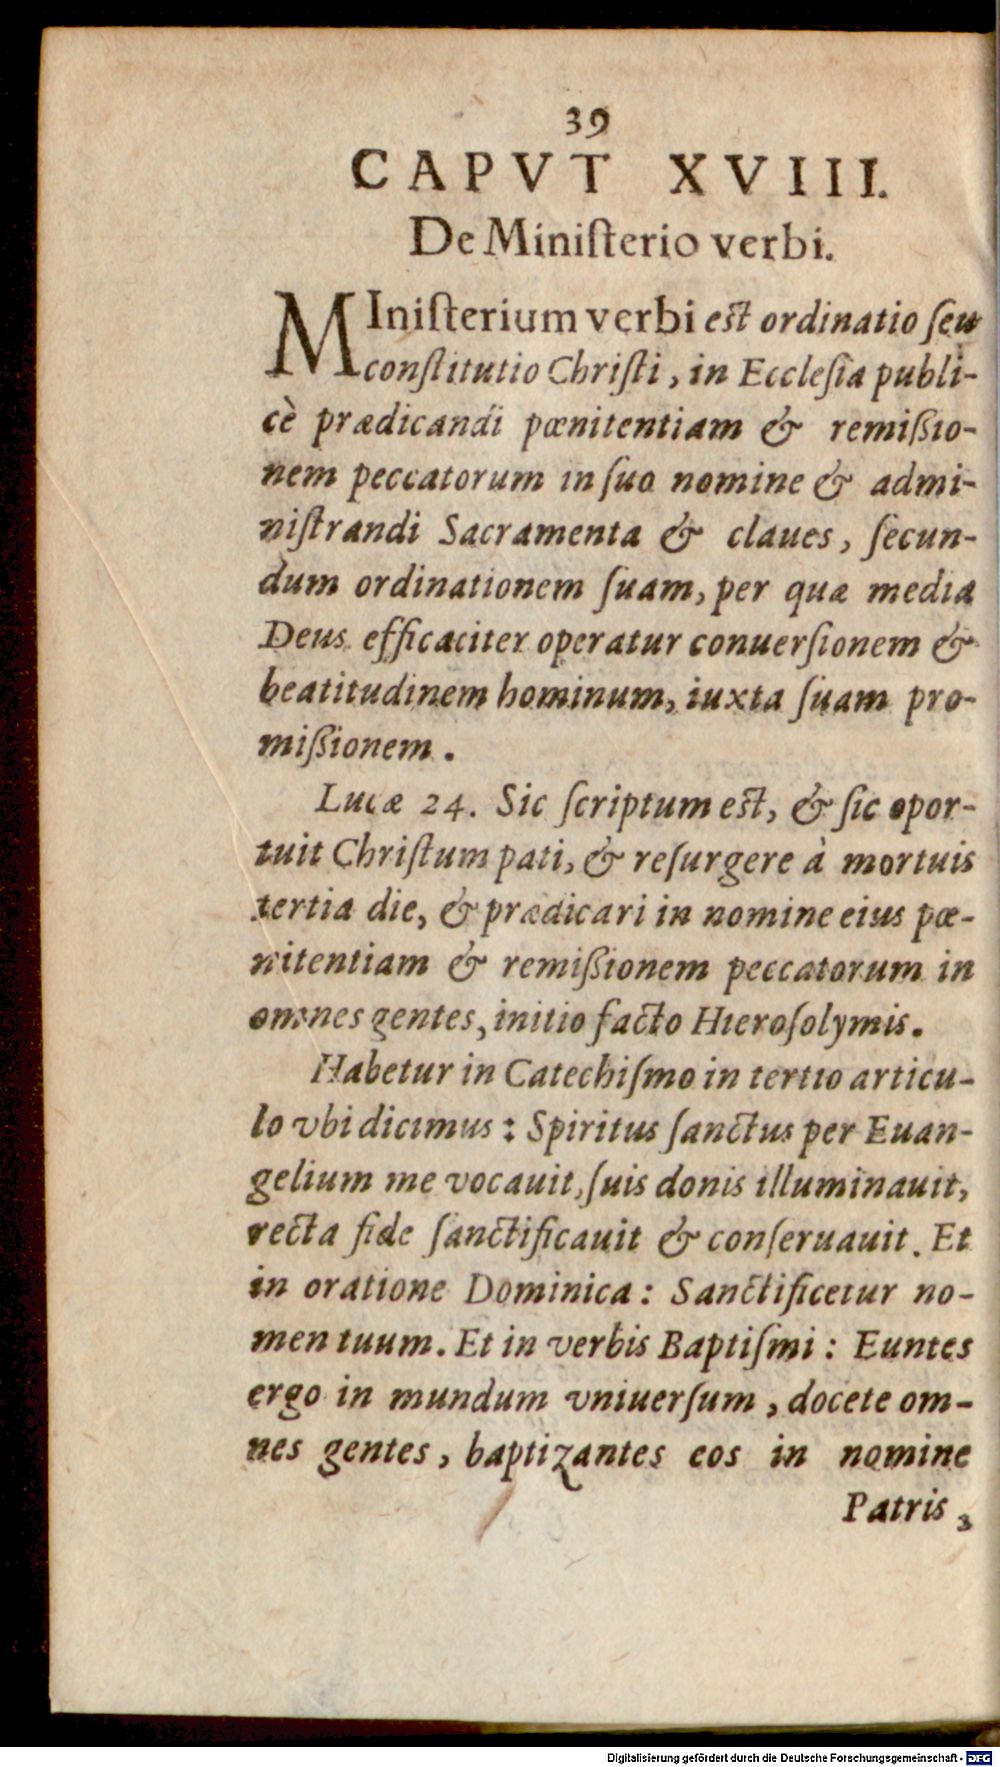 39
CAPVT XVIII.
De Miniſterio verbi.
MIniſterium verbi eſt ordinatio ſeu
conſtitutio Chriſti, in Eccleſia publi-
cè prædicandi pœnitentiam & remiſsio-
nem peccatorum in ſuo nomine & admi-
niſtrandi Sacramenta & claues, ſecun-
dum ordinationem ſuam, per quæ media
Deus efficaciter operatur conuerſionem &
beatitudinem hominum, iuxta ſuam pro-
miſsionem.
Lucæ 24. Sic ſcriptum eſt, & ſic opor-
tuit Chriſtum pati, & reſurgere à mortuis
tertia die, & prædicari in nomine eius pœ-
nitentiam & remiſsionem peccatorum in
omnes gentes, initio facto Hieroſolymis.
Habetur in Catechiſmo in tertio articu-
lo vbi dicimus: Spiritus ſanctus per Euan-
gelium me vocauit, ſuis donis illuminauit,
recta fide ſanctificauit & conſeruauit. Et
in oratione Dominica: Sanctificetur no-
men tuum. Et in verbis Baptiſmi: Euntes
ergo in mundum vniuerſum, docete om-
nes gentes, baptizantes eos in nomine
Patris,
Digitalisierung gefördert durch die Deutsche Forschungsgemeinschaft - DFG